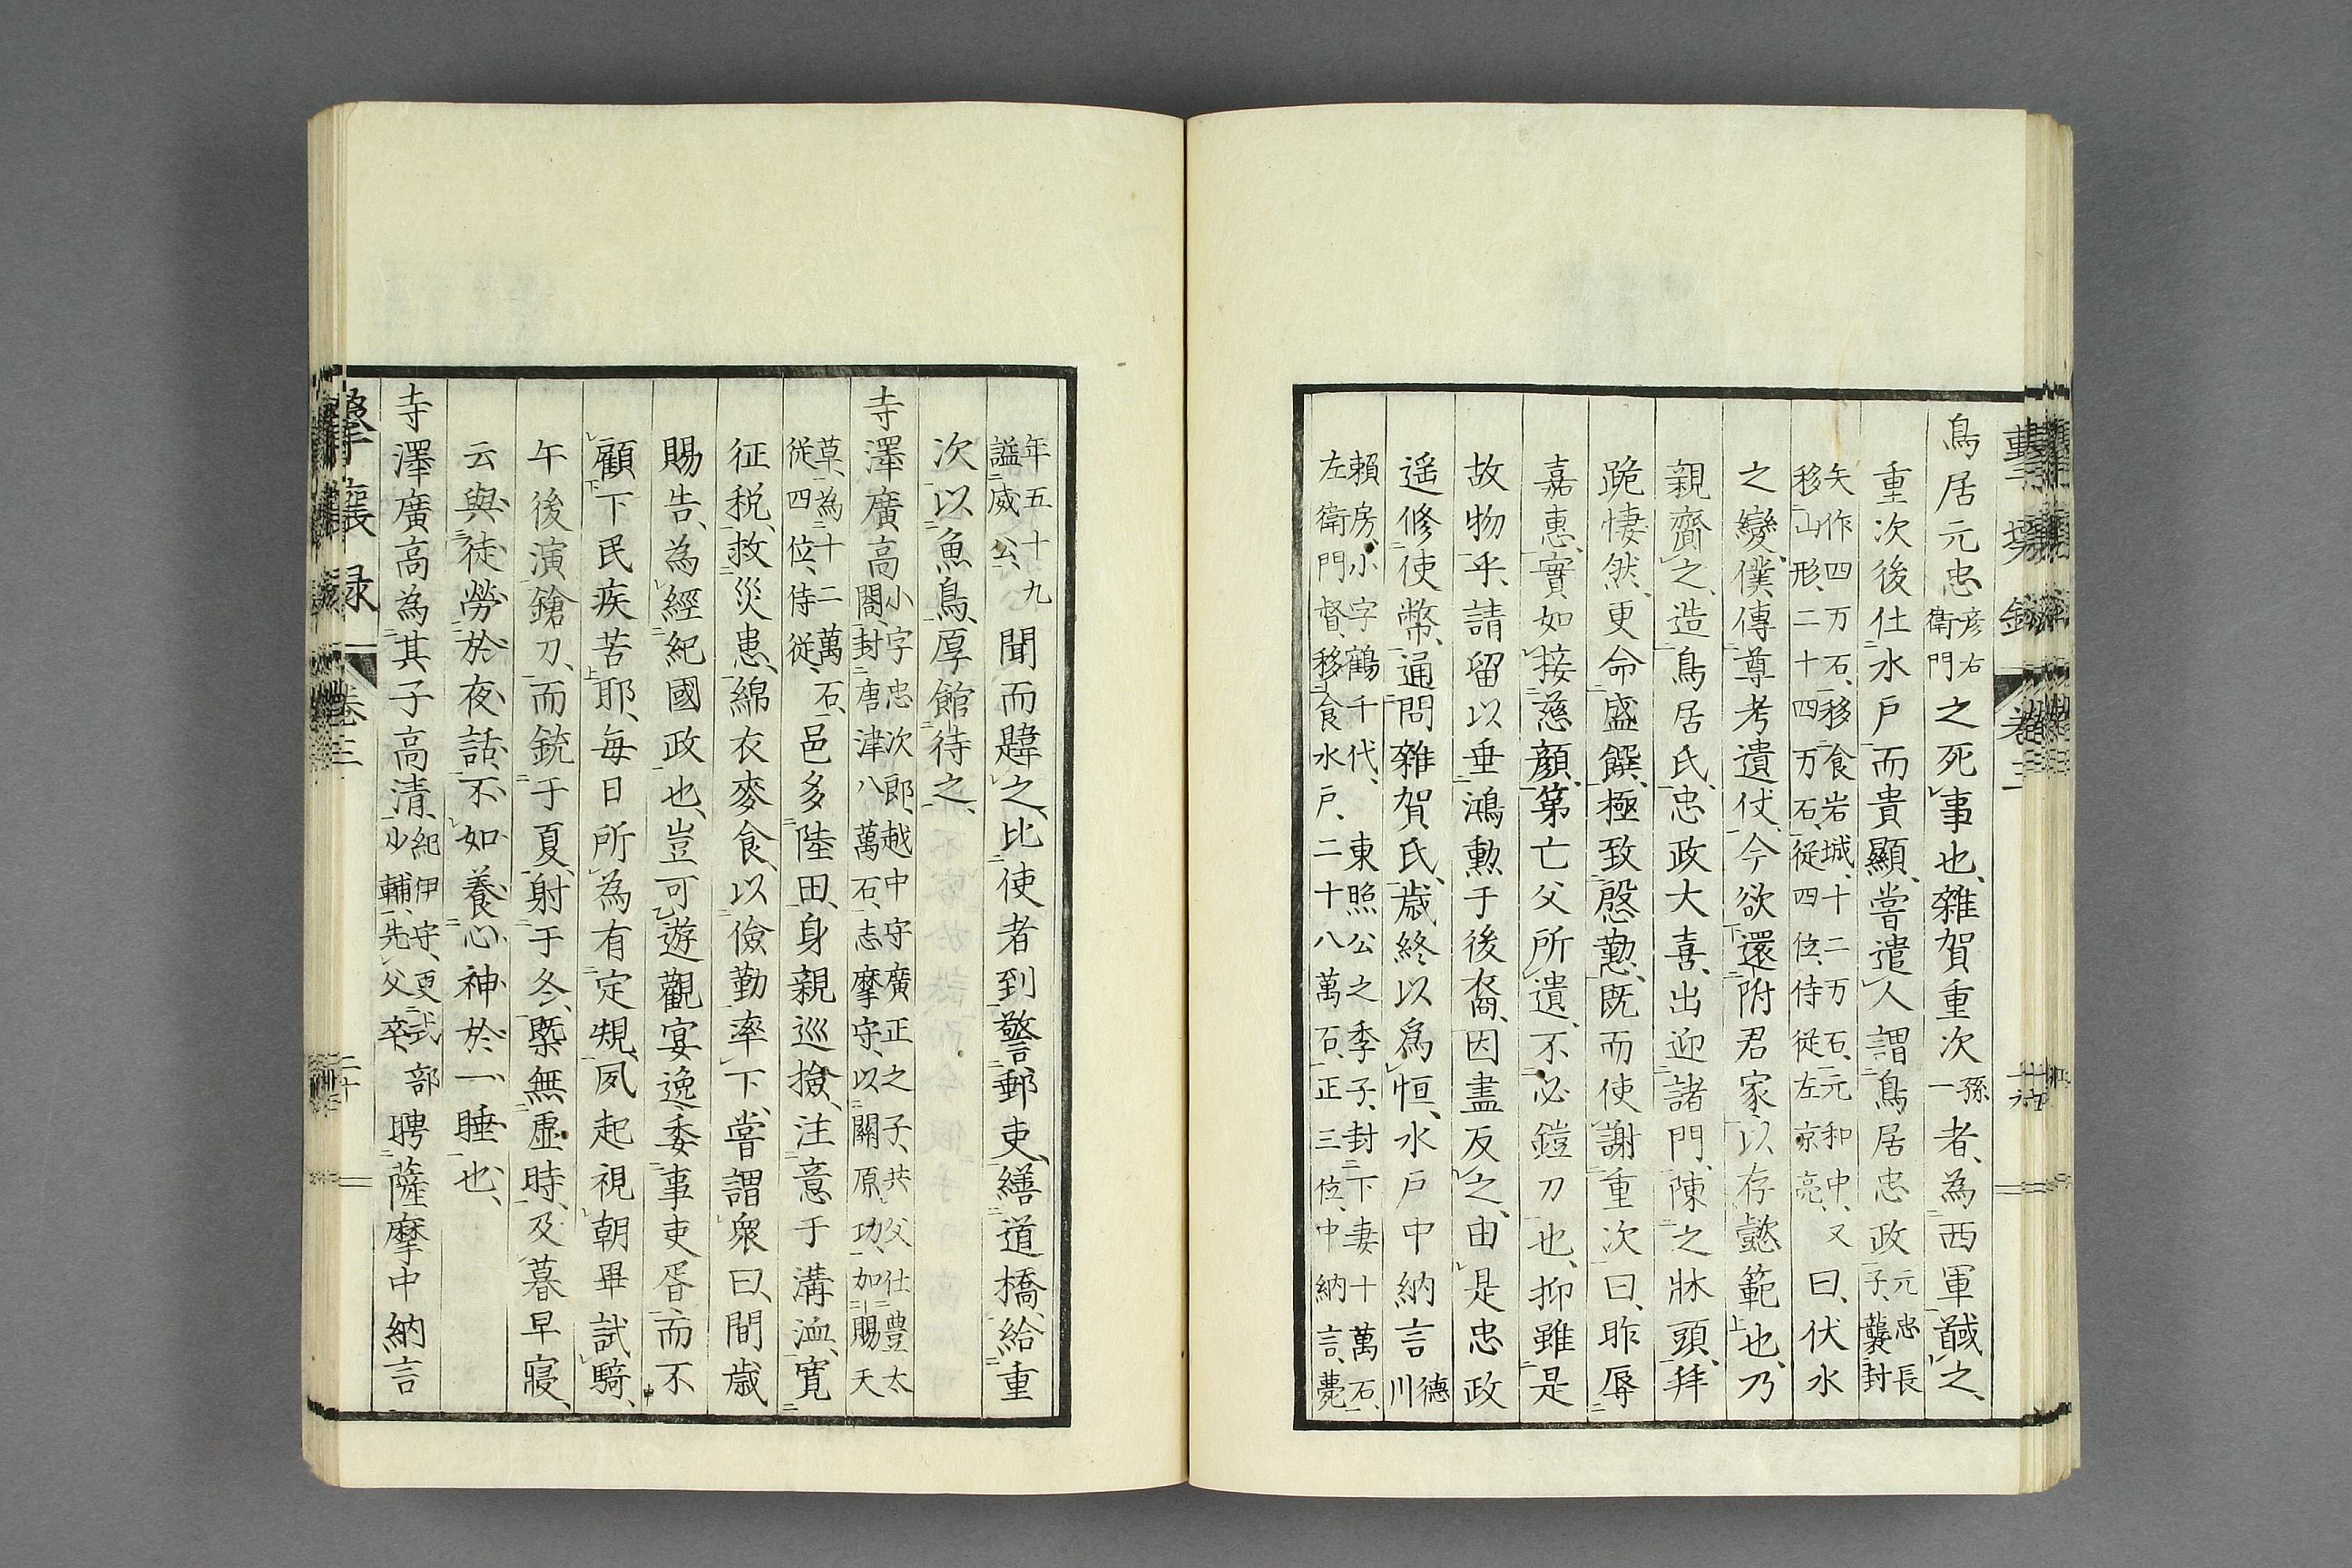 鳥居元忠彦右衛門之死事也、雜賀重次孫一者、為西軍馘之、
重次後仕水戸而貴顯、嘗遣人謂鳥居忠政元忠長子、襲封
矢作四万石、移食岩城、十二万石、元和中、又移山形、二十四万石、從四位、侍従左京亮、曰、伏水
之變、僕傳尊考遺仗、今欲還附君家、以存懿範也、乃
親齎之造鳥居氏、忠政大喜、出迎諸門、陳之牀頭、拜
跪悽然、更命盛饌、極致慇懃、既而使謝重次曰、昨辱
嘉惠、實如接慈顔、第亡父所遺、不必鎧刀也、抑雖是
故物乎、請留以垂鴻勲于後裔、因盡反之、由是忠政
遥修使幣、通問雜賀氏、歳終以為恒、水戸中納言德川
賴房、小字鶴千代、東照公之季子、封下妻十萬石、左衛門督、移食水戸、二十八萬石、正三位、中納言、薨
年五十九諡威公、聞而韙之、比使者到、警郵吏、繕道橋、給重
次以魚鳥、厚館待之、
寺澤廣高小字忠次郎、越中守廣正之子、共父仕豊太閤、封唐津八萬石、志摩守、以關原功、加賜天
草、為十二萬石、従四位、侍従、邑多陸田、身親巡撿、注意于溝洫、寛
征税、救災患、綿衣麥食、以儉勤率下、嘗謂衆曰、間歳
賜告、為經紀國政也、豈可遊觀宴逸、委事吏胥、而不
顧下民疾苦耶、毎日所為有定規、夙起視朝、畢試騎、
午後演鎗刀、而銃于夏、射于冬、槩無虚時、及暮早寢、
云與徒勞於夜話、不如養心神於一睡也、
寺澤廣高為其子高清、紀伊守、更式部少輔、先父卒、聘薩摩中納言
卷三
卷三
二十